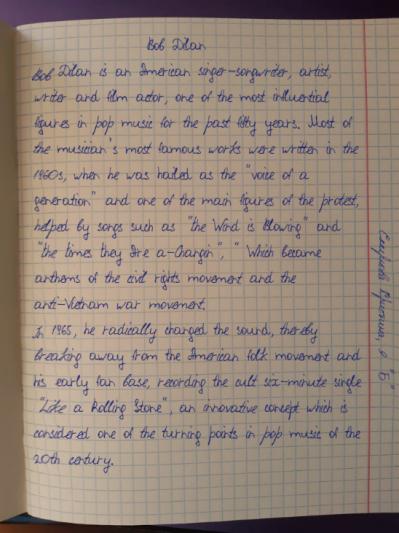 Bob Dilan
Bob Dilan is an American singer-songwriter, artist,
writer and film actor, one of the most influential
figures in pop music for the past fifty years. Most of
the musician's most famous works were written in the
1960s, when he was hailed as the "voice of a
generation" and one of the main figures of the protest,
helped by songs such as "the Wind is Blowing" and
"the times they Are a-Changin", " Which became
anthems of the civil rights movement and the
anti-Vietnam war movement.
In 1965, he radically changed the sound, thereby
breaking away from the American folk movement and
his early fan base, recording the cult six-minute single
"Like a Rolling Stone", an innovative concept which is
considered one of the turning points in pop music of the
20th century.
"Б"